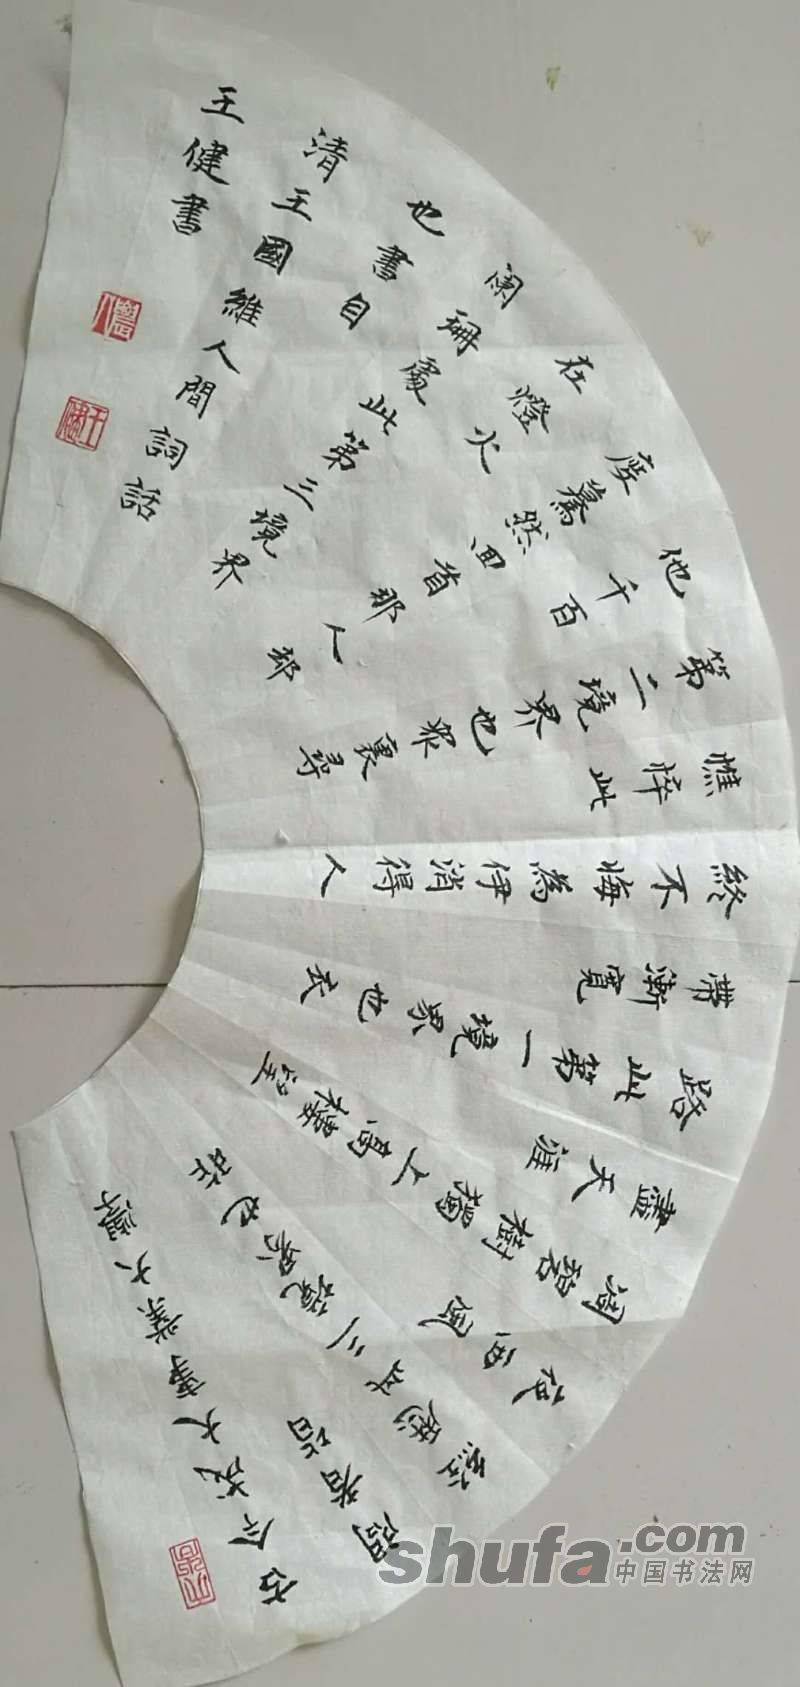 古今成大事業大學
問者皆
經歷之三境界也昨
夜西風
凋碧樹獨上高樓望
盡天涯
路此第一境界也衣
帶漸寬
終不悔為伊消得人
憔悴此
第二境界也眾裏尋
他千百
度驀然回省那人却
在燈火
闌珊處此第三境界
也書自
清王國維人間詞話
王健書
王健
shufa.com
中国书法网